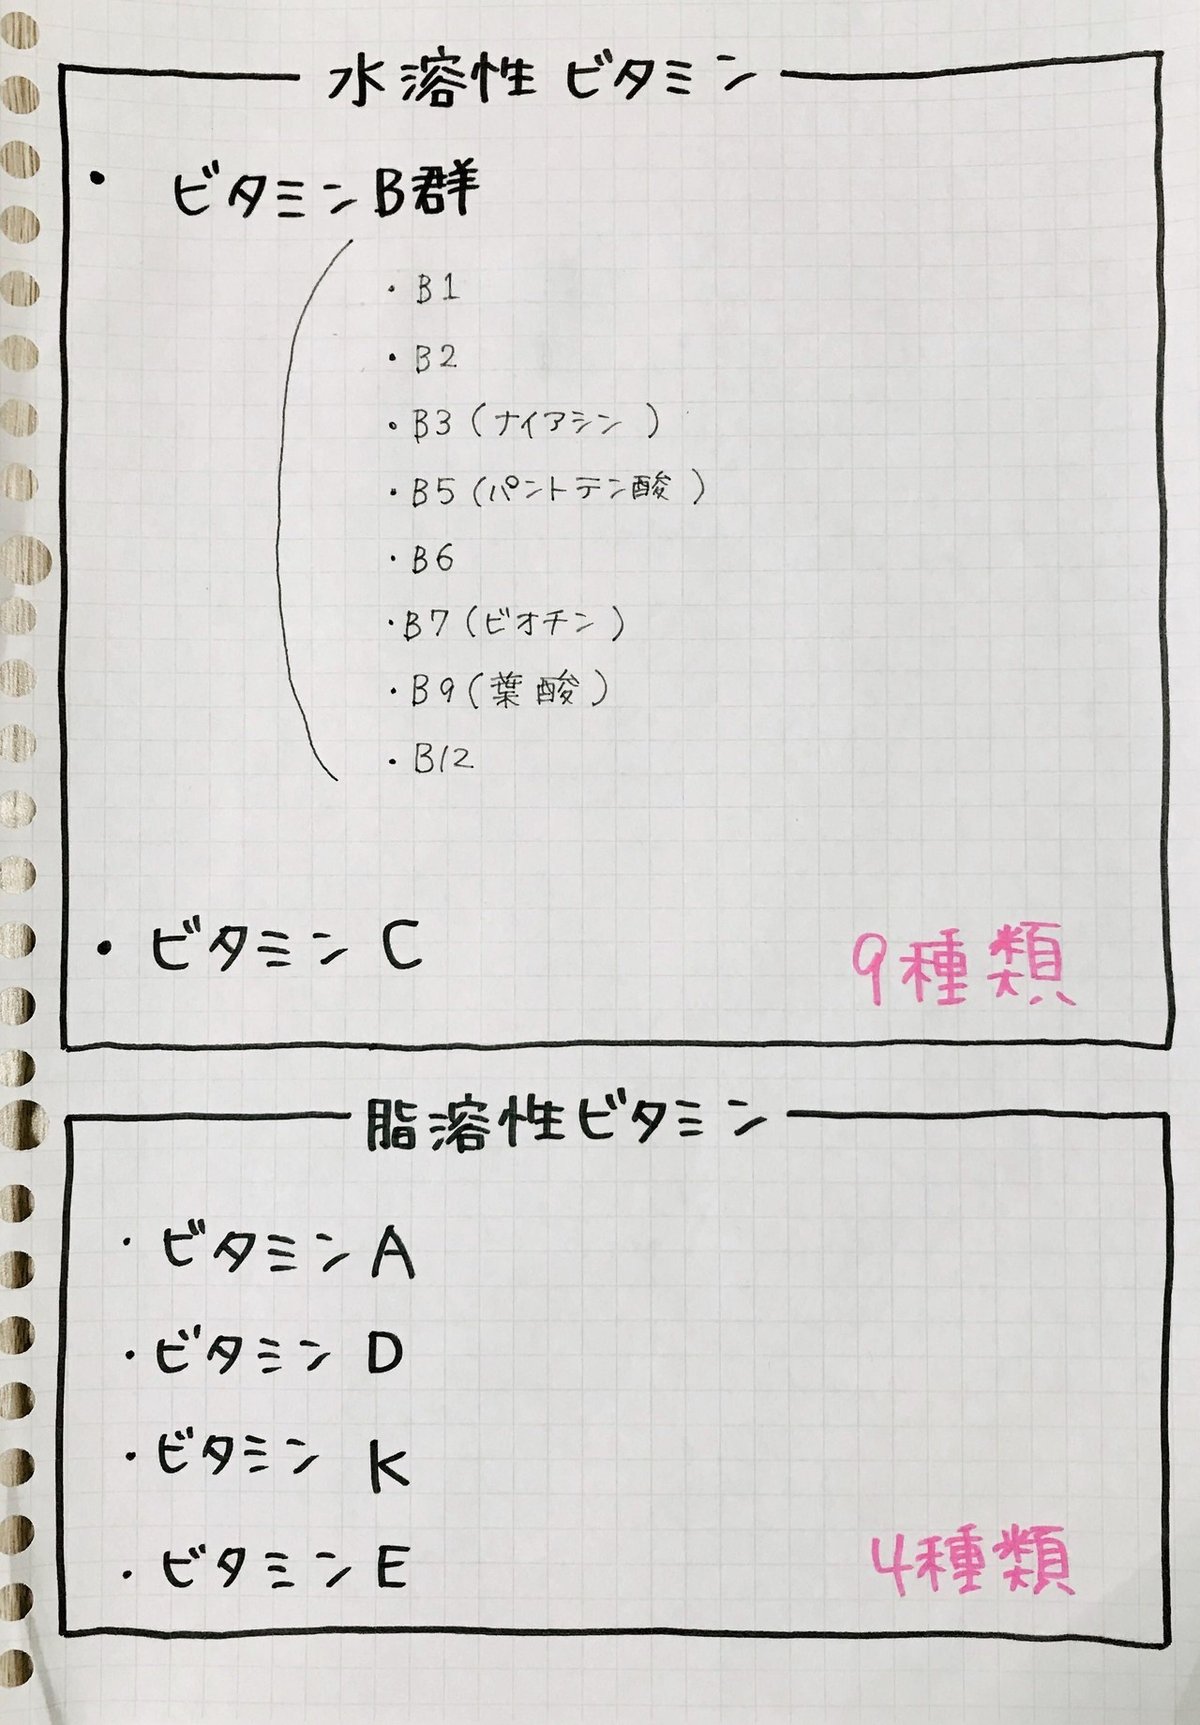 水溶性 ビタミン
・ ビタミンB群
・B1
・B2
・B3(ナイアシン)
・B5(パントテン酸)
・B6
・B7(ビオチン)
・B9(葉酸)
・B12
・ビタミン C
9種類
脂溶性ビタミン
・ビタミンA
・ビタミン D
・ビタミン K
・ビタミンE
4種類